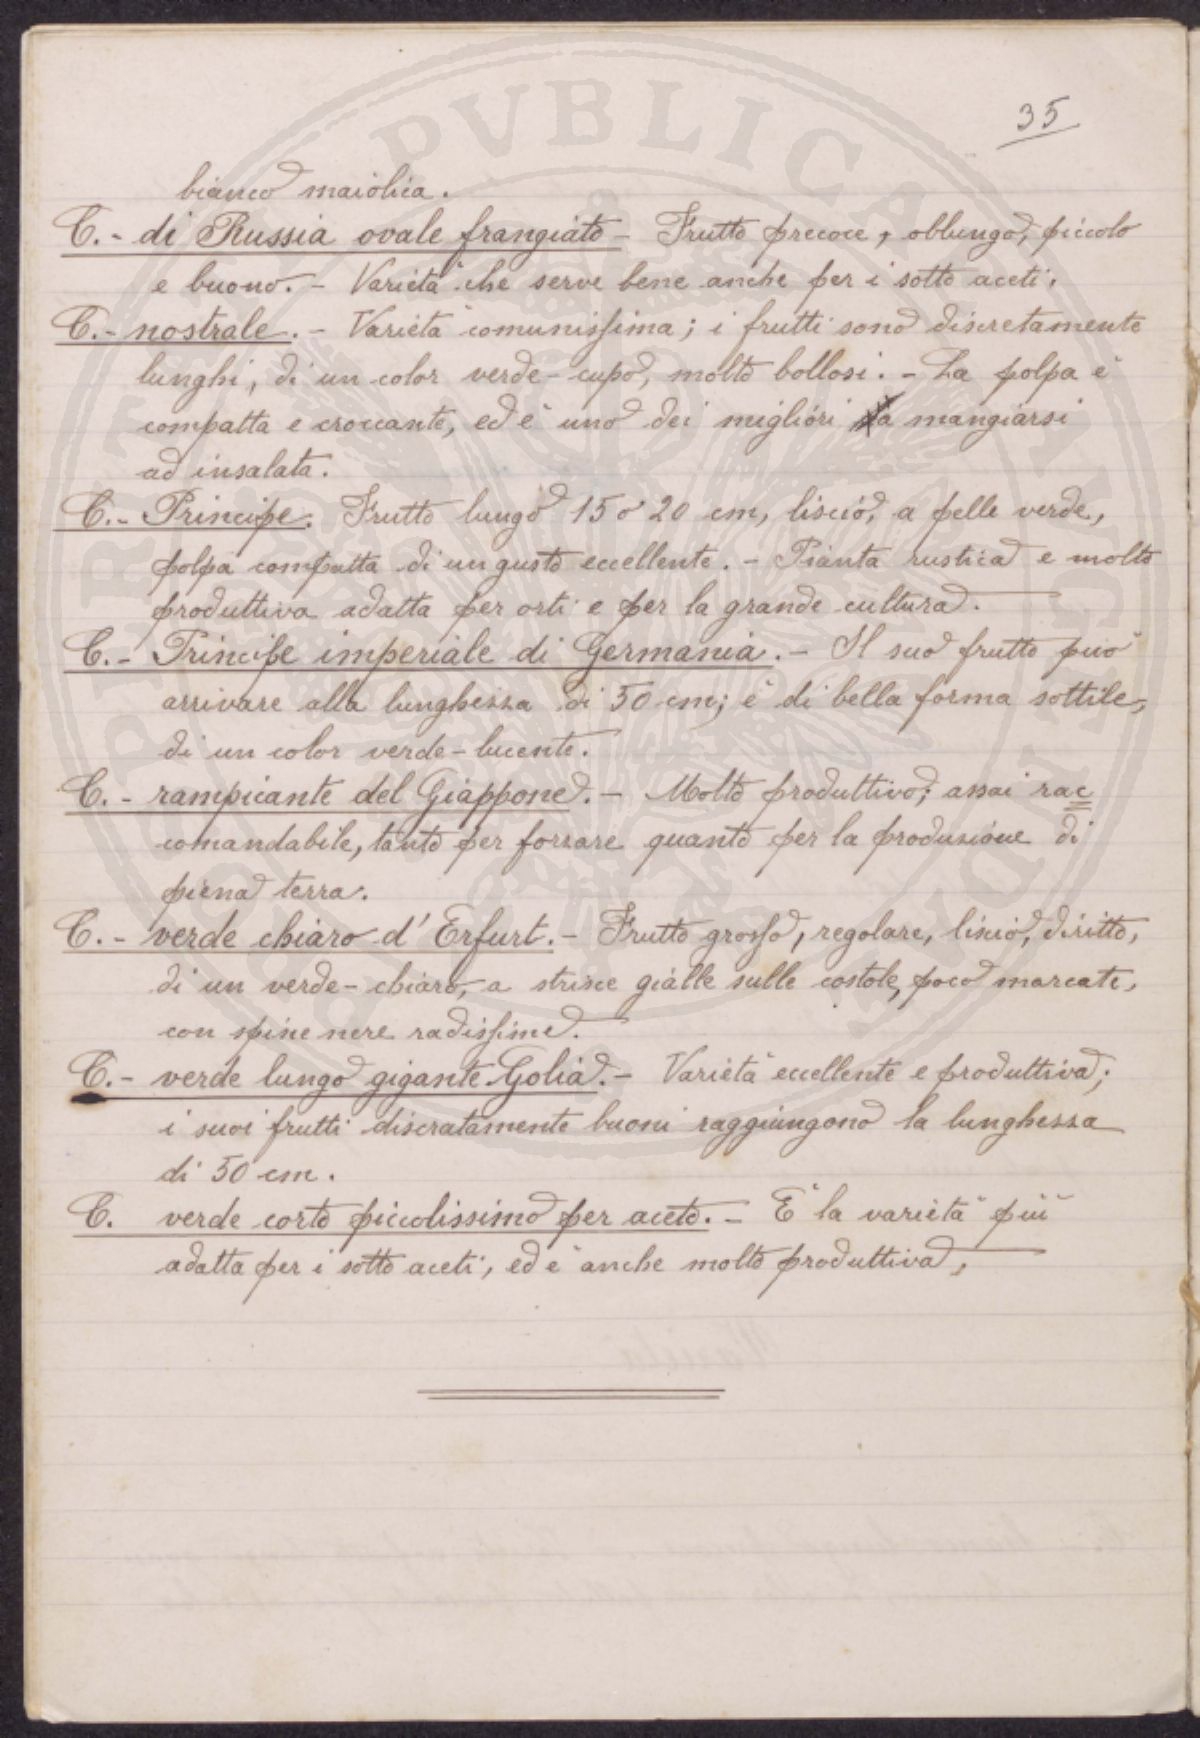 35
bianco maiolica.
C. - di Russia ovale frangiato - Frutto precoce, oblungo, piccolo
e buono. - Varietà che serve bene anche per i sotto aceti.
C. - nostrale. - Varietà comunissima; i frutti sono discretamente
lunghi, di un color verde-cupo, molto bollosi. - La polpa è
compatta e croccante, ed è uno dei migliori da mangiarsi
ad insalata.
C. - Principe. Frutto lungo 15 o 20 cm, liscio, a pelle verde,
polpa compatta di un gusto eccellente. - Pianta rustica e molto
produttiva adatta per orti e per la grande cultura.
C. - Principe imperiale di Germania. - Il suo frutto può
arrivare alla lunghezza di 50 cm; è di bella forma sottile,
di un color verde-lucente.
C. - rampicante del Giappone. - Molto produttivo; assai rac
comandabile, tanto per forzare quanto per la produzione di
piena terra.
C. - verde chiaro d'Erfurt. - Frutto grosso, regolare, liscio, diritto,
di un verde-chiaro, a strisce gialle sulle costole, poco marcate,
con spine nere radissime.
C. - verde lungo gigante Golia. - Varietà eccellente e produttiva;
i suoi frutti discratamente buoni raggiungono la lunghezza
di 50 cm.
C. verde corto piccolissimo per aceto. - È la varietà più
adatta per i sotto aceti, ed è anche molto produttiva,
PVBLICA